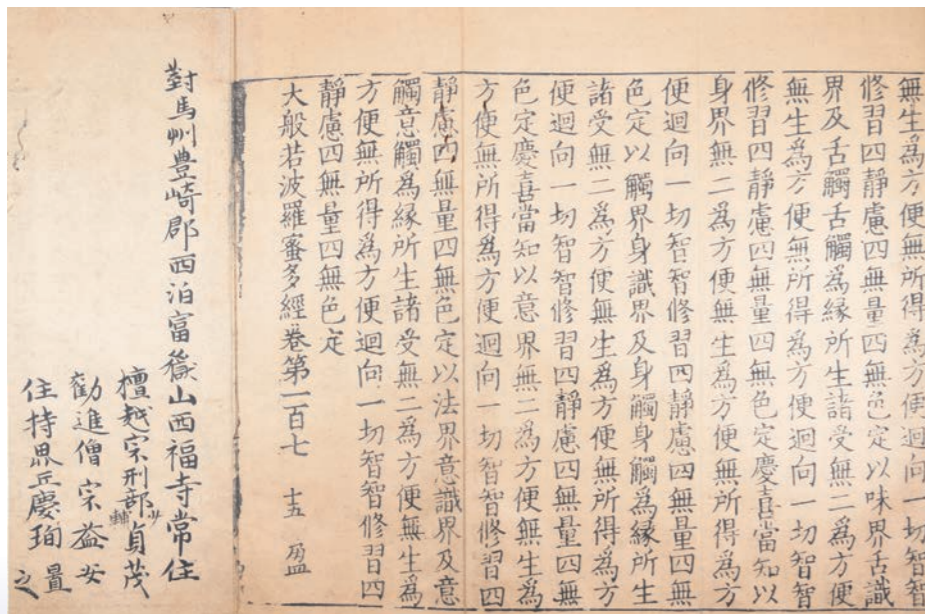 無生爲方便無所得爲方便迴向一切智智
修習四靜慮四無量四無色定以味界舌識
界及舌觸舌觸爲緣所生諸受無二爲方便
無生爲方便無所得爲方便迴向一切智智
修習四靜慮四無量四無色定慶喜當知以
身界無二爲方便無生爲方便無所得爲方
便迴向一切智智修習四靜慮四無量四無
色定以觸界身識界及身觸身觸爲緣所生
諸受無二爲方便無生爲方便無所得爲方
便迴向一切智智修習四靜慮四無量四無
色定慶喜當知以意界無二爲方便無生爲
方便無所得爲方便迴向一切智智修習四
靜慮四無量四無色定以法界意識界及意
觸意觸爲緣所生諸受無二爲方便無生爲
方便無所得爲方便迴向一切智智修習四
靜慮四無量四無色定
大般若波羅蜜多經卷第一百七 十五 盈
對馬州豊崎郡西泊富嶽山西福寺常住
檀越宗刑部少輔貞茂
勸進僧宗益安
住持比丘慶珣置之